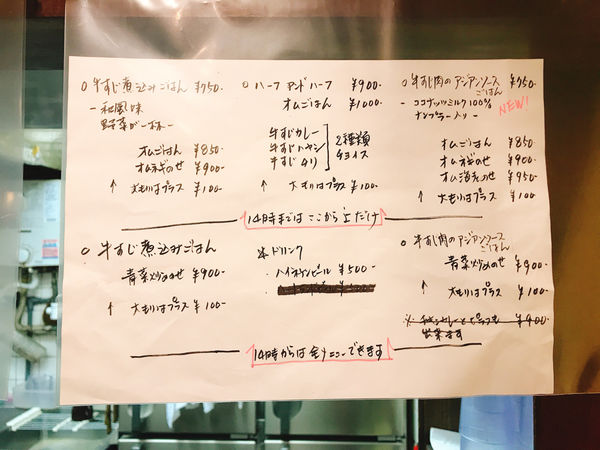 ○ 牛すじ煮込みごはん ¥750-
- 和風味
野菜が一杯 -
オムごはん ¥850
オムネギのせ ¥900-
↑ 大もりはプラス ¥100-
○ ハーフ アンド ハーフ ¥900-
オムごはん ¥1000-
牛すじカレー
牛すじハヤシ
牛すじ
2種類
チョイス
↑ 大もりはプラス ¥100
○ 牛すじ肉のアジアンソース ¥750-
ごはん
- ココナッツミルク 100%
ナンプラー入り -
NEW!
オムごはん ¥850
オムネギのせ ¥900
¥950
↑ 大もりはプラス ¥100
14時までは ここから上だけ
○ 牛すじ煮込みごはん
青菜炒めのせ ¥900-
↑ 大もりはプラス ¥100-
※ ドリンク
¥500-
○ 牛すじ肉のアジアンソース
ごはん
青菜炒めのせ ¥900-
↑ 大もりはプラス ¥100
¥900
14時からは全メニューできます